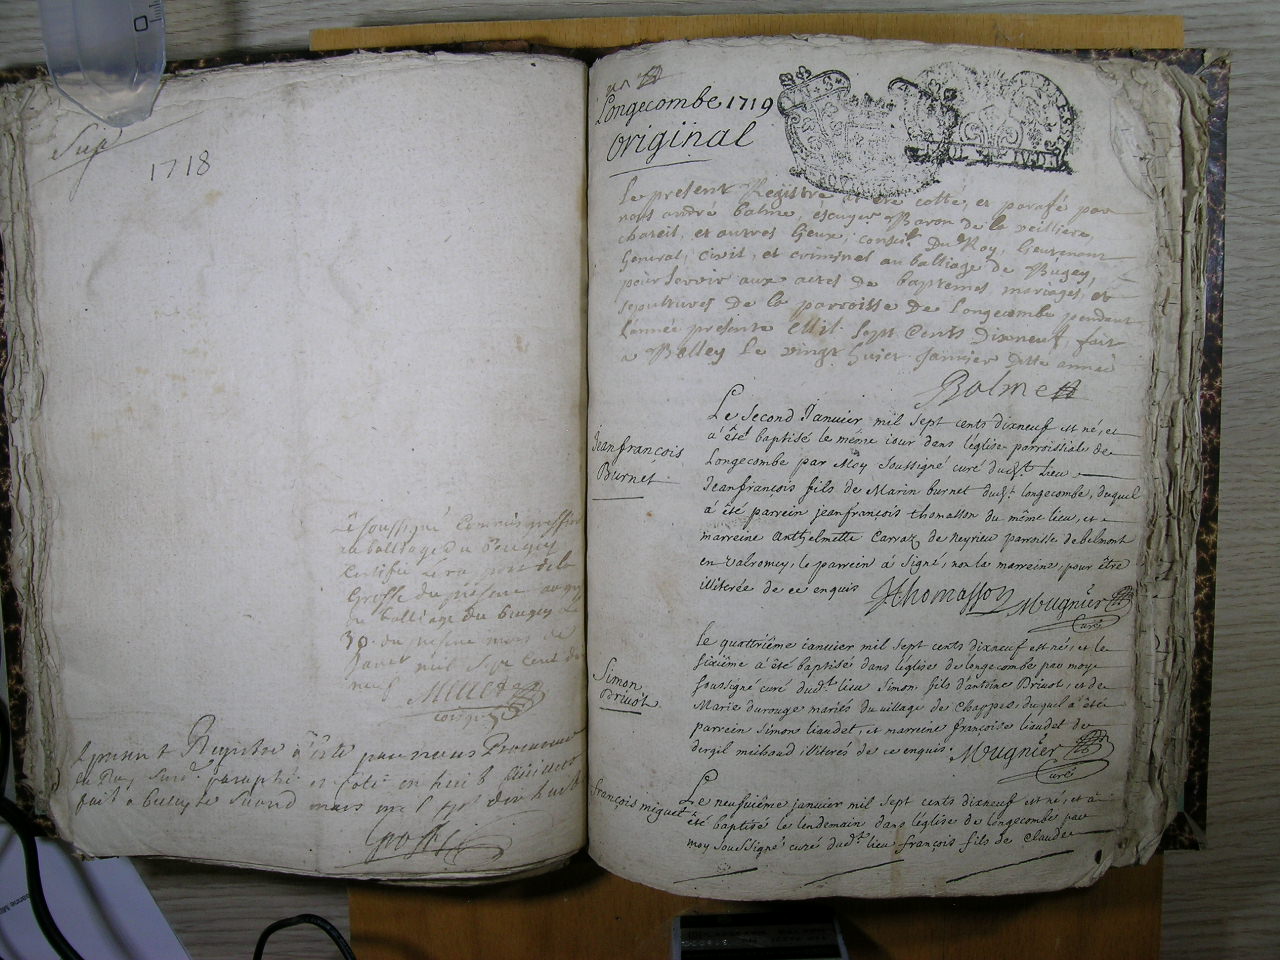 1718
Je soussigné Commis greffier
au balliage du beugey
Certifie
Greffe du présent
du balliage du beugey Le
30. du présent mois de
Janet mil sept cent dix
neuf
Le present Registre a esté par nous Procureur
du Roy paraphé et coté en huit feuillets
fait à beley le second mars mil sept dix huit
Longecombe 1719
original
Le present Registre a eté cotté, et parafé par
nous andré balme, escuyer Baron de la veilliere,
chareil, et autres lieux, conseil. Du Roy, lieutenant
General, civil, et criminel au balliage de Bugey,
pour servir aux actes de baptemes, mariages, et
sepultures de la parroisse de Longecombe pendant
l'année presente Mil Sept Cents Dixneuf, fait
a Belley le vingt huict Janvier ditte année
Balme
Le second Janvier mil sept cents dixneuf est né, et
à été baptisé le même jour dans l'église parroissiale de
Longecombe par Moy soussigné curé dudt. Lieu
Jeanfrançois fils de Marin burnet dudt. longecombe, duquel
à été parrein jeanfrançois thomasson du même lieu, et
marreine anthelmette Carraz de neyrieu parroisse de belmont
en valromey, le parrein à signé, non la marreine, pour être
illiterée de ce enquis JThomasson Mugnier
Curé
Jeanfrançois
Burnet
le quattriême ianvier mil sept cents dixneuf est né, et le
sixiême a été baptisé dans l'église de longecombe par moy
soussigné curé dudt. lieu Simon fils d'antoine Brivot, et de
Marie durouge mariés du village de Chappes duquel a été
parrein Simon liaudet, et marreine françoise liaudet de
dergil meiboud illiterés de ce enquis. Mugnier
Curé
Simon
Brivot
françois miguet
Le neufuiême janvier mil sept cents dixneuf est né, et à
été baptisé le lendemain dans l'église de longecombe par
moy soussigné curé dudt. lieu françois fils de Claude